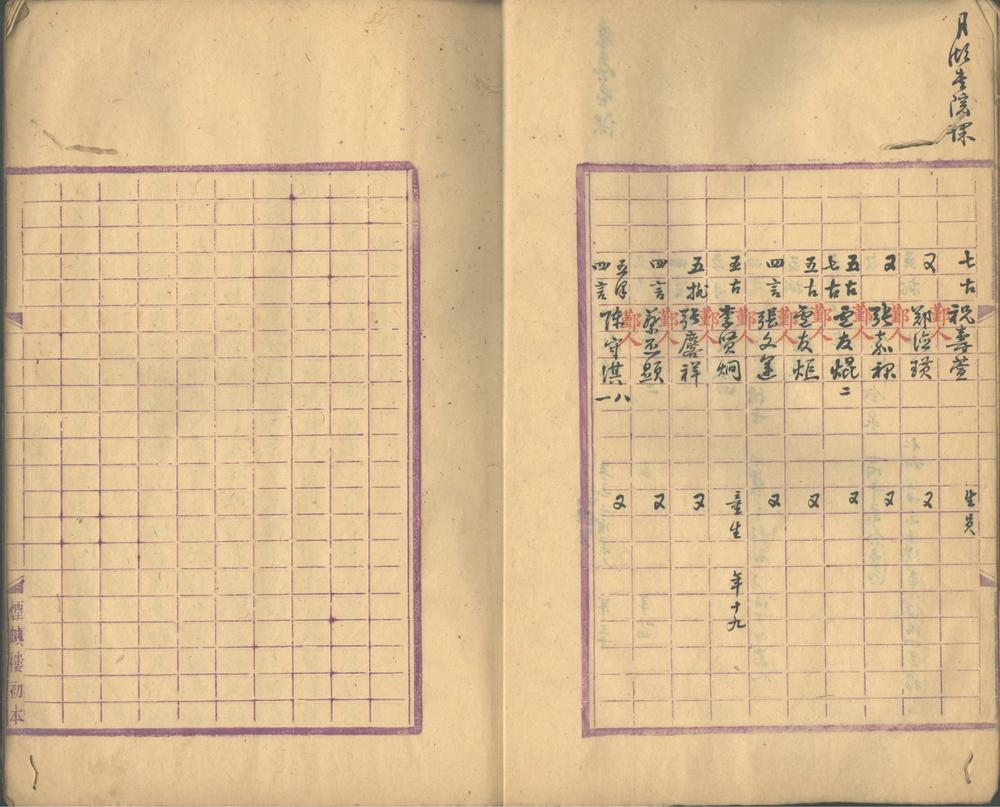 月湖書院課
七古 祝壽萱 生員
又 鄭德璜 又
又 張嘉祿 又
五古 七古 童友焜 二 又
五古 童友炬 又
四言 張文運 又
五古 李賢炯 童生 年十九
五排 張慶祥 又
四言 蔡丕顯 又
五律 四言 陳守淇 八一 又
鄞人
鄞人
鄞人
鄞人
鄞人
鄞人
鄞人
鄞人
鄞人
煙嶼樓初本